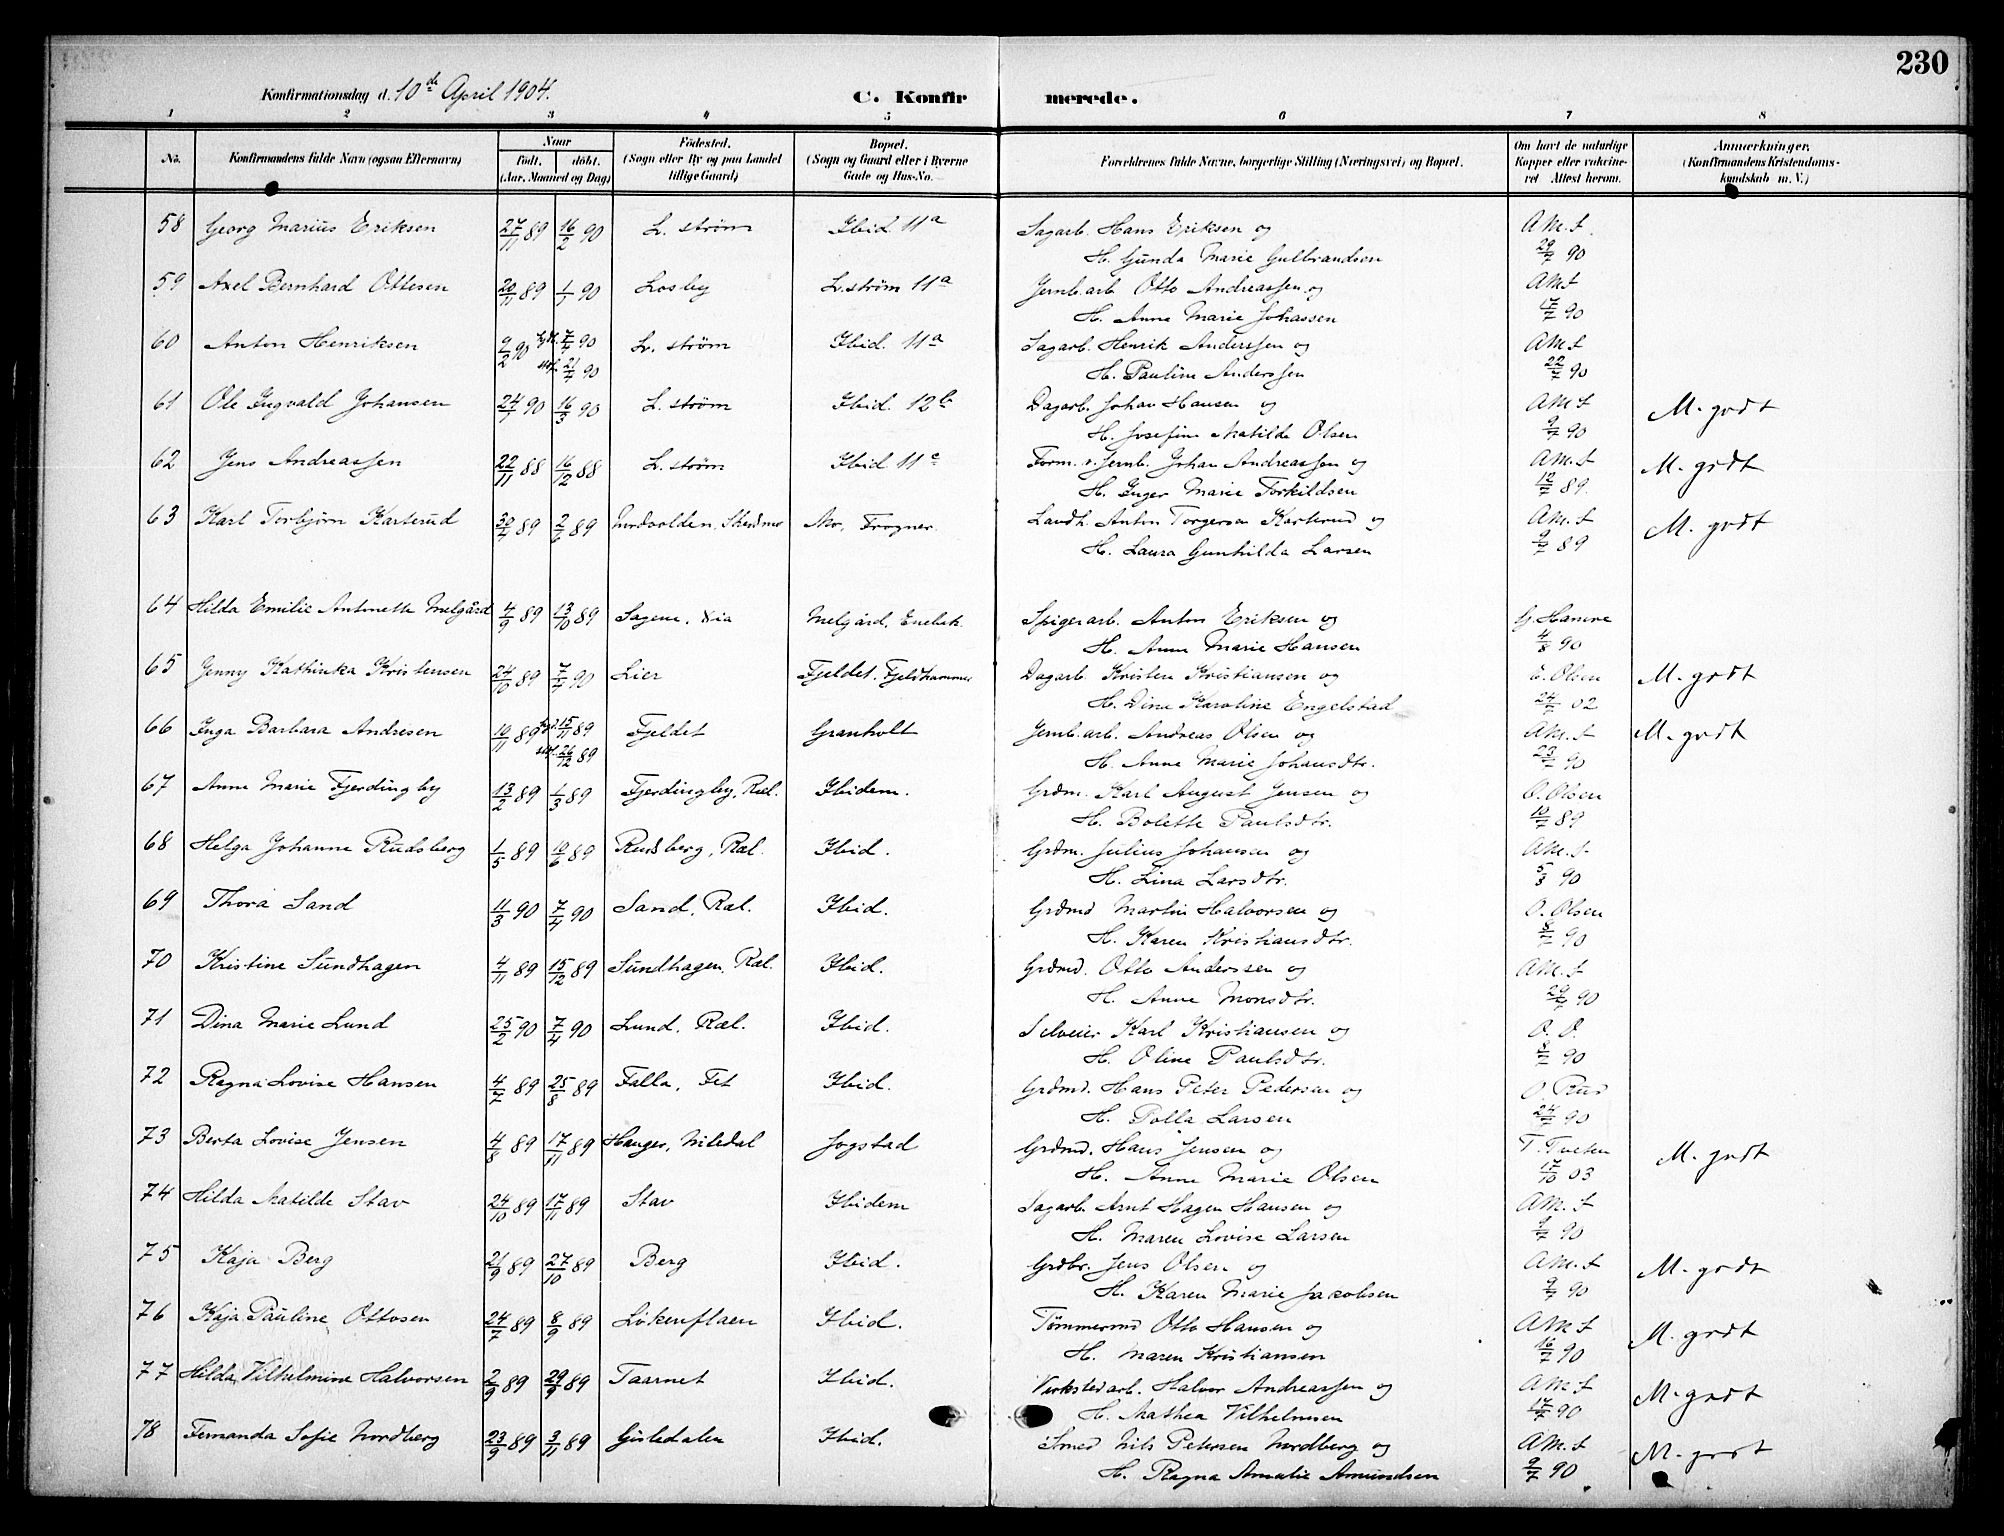 230
Konfirmationsdag d. 10de April 1904.
C. Konfirmerede.
1 2 3 4 5 6 7 8
No. Konfirmandens fulde Navn (ogsaa Efternavn) Naar født. døbt. (Aar, Maaned og Dag) Fødested. (Sogn eller By og paa Landet tillige Gaard) Bopæl. (Sogn og Gaard eller i Byerne Gade og Hus-No. Forældrenes fulde Navne, borgerlige Stilling (Næringsvei) og Bopæl. Om havt de naturlige Kopper eller vakcineret Attest herom. Anmærkninger, (Konfirmandens Kristendomskundskab m. V.)
58 Georg Marius Eriksen 27/11 89 16/2 90 L. strøm Ibid. 11a Sagarb. Hans Eriksen og A M. S.
H. Gunda Marie Gulbrandsen 29/7 90
59 Axel Bernhard Ottesen 20/11 89 1/1 90 Losby L. strøm 11a Jernb. arb. Otto Andreassen og A M S
H. Anna Marie Johassen 17/7 90
60 Anton Henriksen 9/2 90 7/4 90 L. strøm Ibid. 11a Sagarb. Henrik Anderssen og A M. S
21/4 90 H. Pauline Anderssen 22/7 90
61 Ole Ingvald Johansen 24/1 90 16/3 90 L. strøm Ibid. 12b Dagarb. Johan Hansen og A M. S M. godt
H. Josefine Matilde Olsen 9/7 90
62 Jens Andreassen 22/11 88 16/12 88 L. strøm Ibid 11c Form. v. Jernb. Johan Andreassen og A M. S M. godt
H. Inger Marie Torkildsen 12/7 89.
63 Karl Torbjørn Karterud 30/4 89 2/6 89 Nordvolden, Skedsmo No, Frogner. Landh. Anton Torgersen Karterud og A M. S M. godt
H. Laura Gunhilda Larsen 9/7 89
64 Hilda Emilie Antonette Melgård 4/9 89 13/10 89 Sagene, Kia Melgård, Enebak. Spigerarb. Anton Eriksen og G. Hamre
H. Anne Marie Hansen 4/8 90
65 Jenny Kathinka Kristensen 24/10 89 7/4 90 Lier Fjeldet, Fjeldhammer Dagarb. Kristen Kristiansen og E. Olsen M. godt
H. Dina Karoline Engelstad 24/7 02
66 Inga Barbara Andresen 10/11 89 15/11 89 Fjeldet Granholt Jernb. arb. Andreas Olsen og A M. S M. godt
26/12 89 H. Anne Marie Johansdtr. 23/7 90
67 Anna Marie Fjerdingby 13/2 89 1/3 89 Fjerdingby, Ræl. Ibidem. Grdm. Karl August Jensen og O. Olsen
H. Bolette Paulsdtr. 10/7 89
68 Helga Johanne Rudsberg 1/5 89 10/6 89 Rudsberg, Ræl. Ibid. Grdm. Julius Johansen og A M. S
H. Lina Larsdtr. 5/8 90
69 Thora Sand 11/3 90 7/4 90 Sand, Ræl. Ibid. Grdmd Martin Halvorsen og O. Olsen
H. Karen Kristiansdtr. 8/7 90
70 Kristine Sundhagen 4/11 89 15/12 89 Sundhagen, Ræl. Ibid. Grdmd. Otto Anderssen og A M. S
H. Anne Monsdtr. 29/7 90
71 Dina Marie Lund 25/2 90 7/4 90 Lund, Ræl. Ibid. Selveier Karl Kristiansen og O. O.
H. Oline Paulsdtr. 8/7 90
72 Ragna Lovise Hansen 4/7 89 25/8 89 Falla, Fet Ibid. Grdmd. Hans Peter Pedersen og O. Rud
H. Polla Larsen 24/7 90
73 Berta Lovise Jensen 4/8 89 17/11 89 Hauger, Nitedal Jogstad Grdmd. Hans Jensen og T. Tveten M. godt
H. Anne Marie Olsen 17/10 03
74 Hilda Matilde Stav 24/10 89 17/11 89 Stav Ibidem Sagarb. Arnt Hagen Hansen og A M. S
H. Maren Lovise Larsen 9/7 90
75 Kaja Berg 21/9 89 27/10 89 Berg Ibid. Grdbr. Jens Olsen og A M. S M. godt
H. Karen Marie Jacobsen 9/7 90
76 Kaja Pauline Ottosen 24/7 89 8/9 89 Løkenflaen Ibid. Tømmermd Otto Hansen og A M. S M. godt
H. Maren Kristiansen 16/7 90
77 Hilda Vilhelmine Halvorsen 2/9 89 29/9 89 Taarnet Ibid. Verkstedarb. Halvor Andreassen og A M. S M. godt
H. Mathea Vilhelmsen 17/7 90
78 Fernanda Sofie Nordberg 23/9 89 3/11 89 Gisledalen Ibid. Smed Nils Petersen Nordberg og A M. S M. godt
H. Ragna Amalie Amundsen 9/7 90